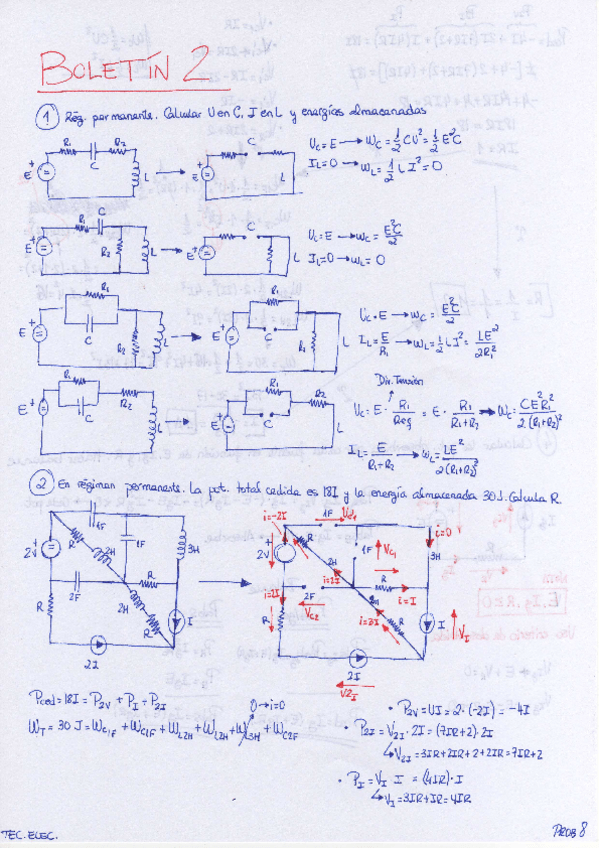 BOLETÍN 2
1 Rég. permanente. Calcular U en C, I en L y energías almacenadas
R1 R2 C L E + =
E + = C L
Uc = E → Wc = 1/2 CU² = 1/2 E²C
IL = 0 → WL = 1/2 L I² = 0
R1 C R2 L E + =
C L E + =
Uc = E → Wc = E²C/2
IL = 0 → WL = 0
R1 C R2 L E + =
R1 C R1 L E + =
Uc = E → Wc = E²C/2
IL = E/R1 → WL = 1/2 L I² = LE²/2R1²
R1 C R2 L E + =
R1 R2 C L E + =
Div. Tensión
Uc = E · R1/Req = E · R1/R1+R2 → Wc = CE²R1²/2(R1+R2)²
IL = E/R1+R2 → WL = LE²/2(R1+R2)²
2 En régimen permanente. La pot. total cedida es 18I y la energía almacenada 30J. Calcula R.
1F 1F 3H 2V + R 2H 2F R 2H R R I 2I
i=-2I 1F Vc1 i=0 2V + R 2H 1F Vc1 3H i=2I R i=I i=2I 2F Vc2 2H i=3I R R I VI 2I V2I
Pced = 18I = P2V + PI + P2I
0 → i=0
WT = 30 J = Wc1F + Wc1F + WL2H + WL2H + WL3H + Wc2F
• P2V = UI = 2·(-2I) = -4I
• P2I = V2I · 2I = (7IR+2) · 2I
↳ V2I = 3IR+2IR+2+2IR = 7IR+2
• PI = VI I = (4IR) · I
↳ VI = 3IR+IR = 4IR
TEC. ELEC.
PROB 8